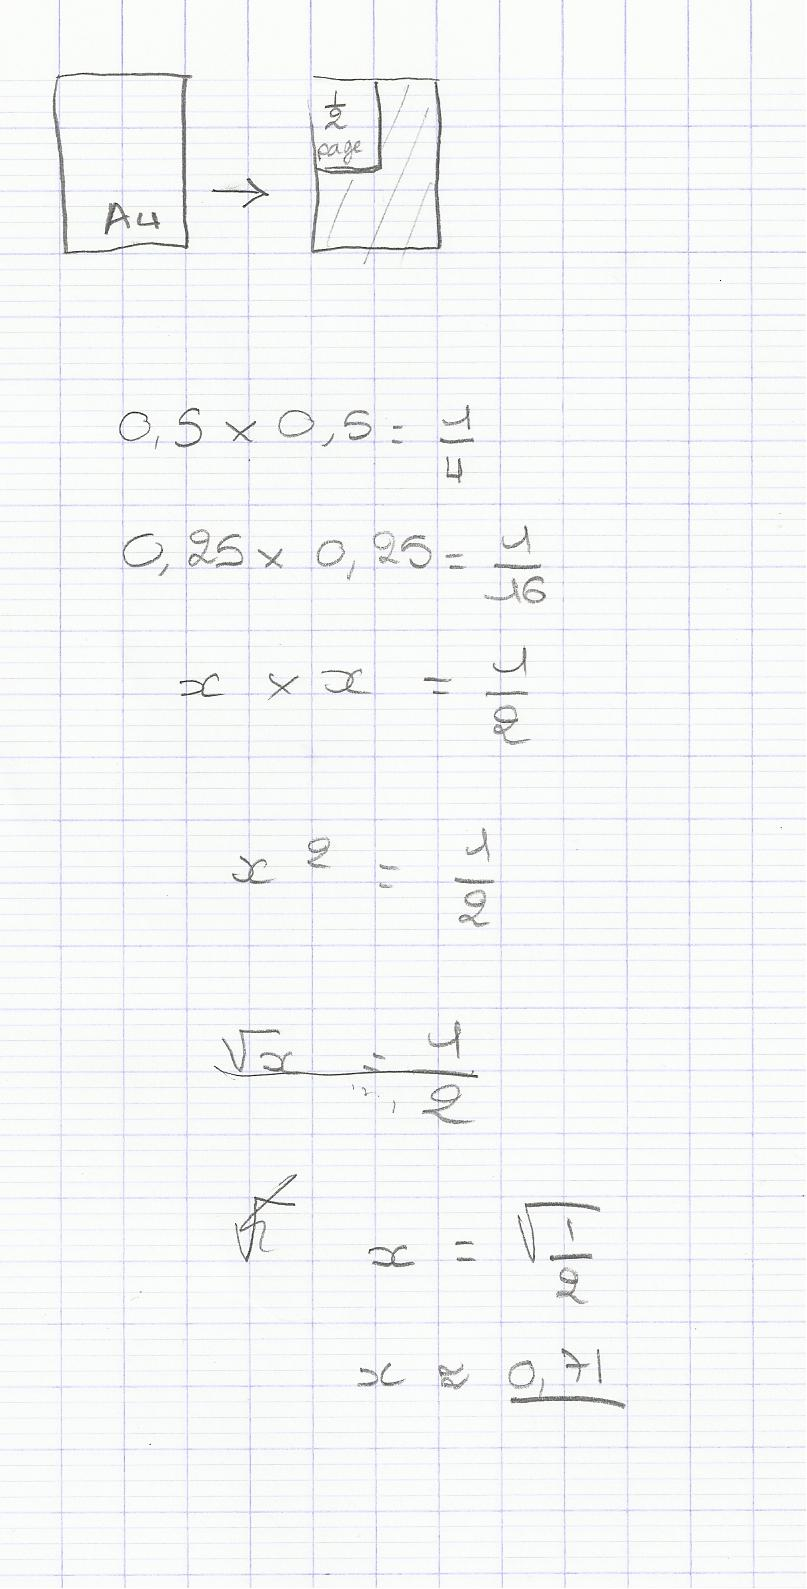 A4
→
1/2
page
0,5 × 0,5 = 1/4
0,25 × 0,25 = 1/16
x × x = 1/2
x² = 1/2
√x = 1/2
x = √1/2
x ≈ 0,71